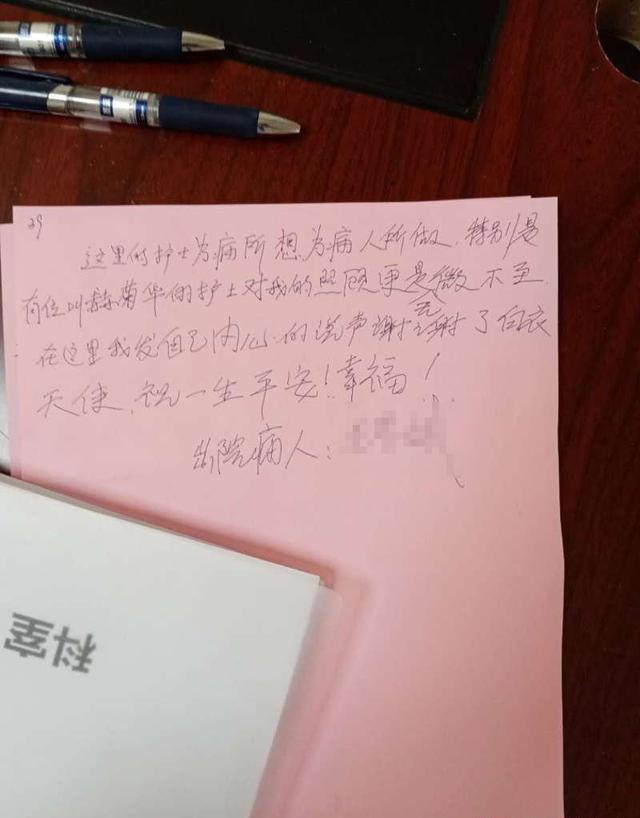 29
这里的护士为病所想,为病人所做,特别是
有位叫赫菊华的护士对我的照顾更是无微不至.
在这里我发自己内心的说声谢谢了白衣
天使,祝一生平安!幸福!
出院病人:
科室